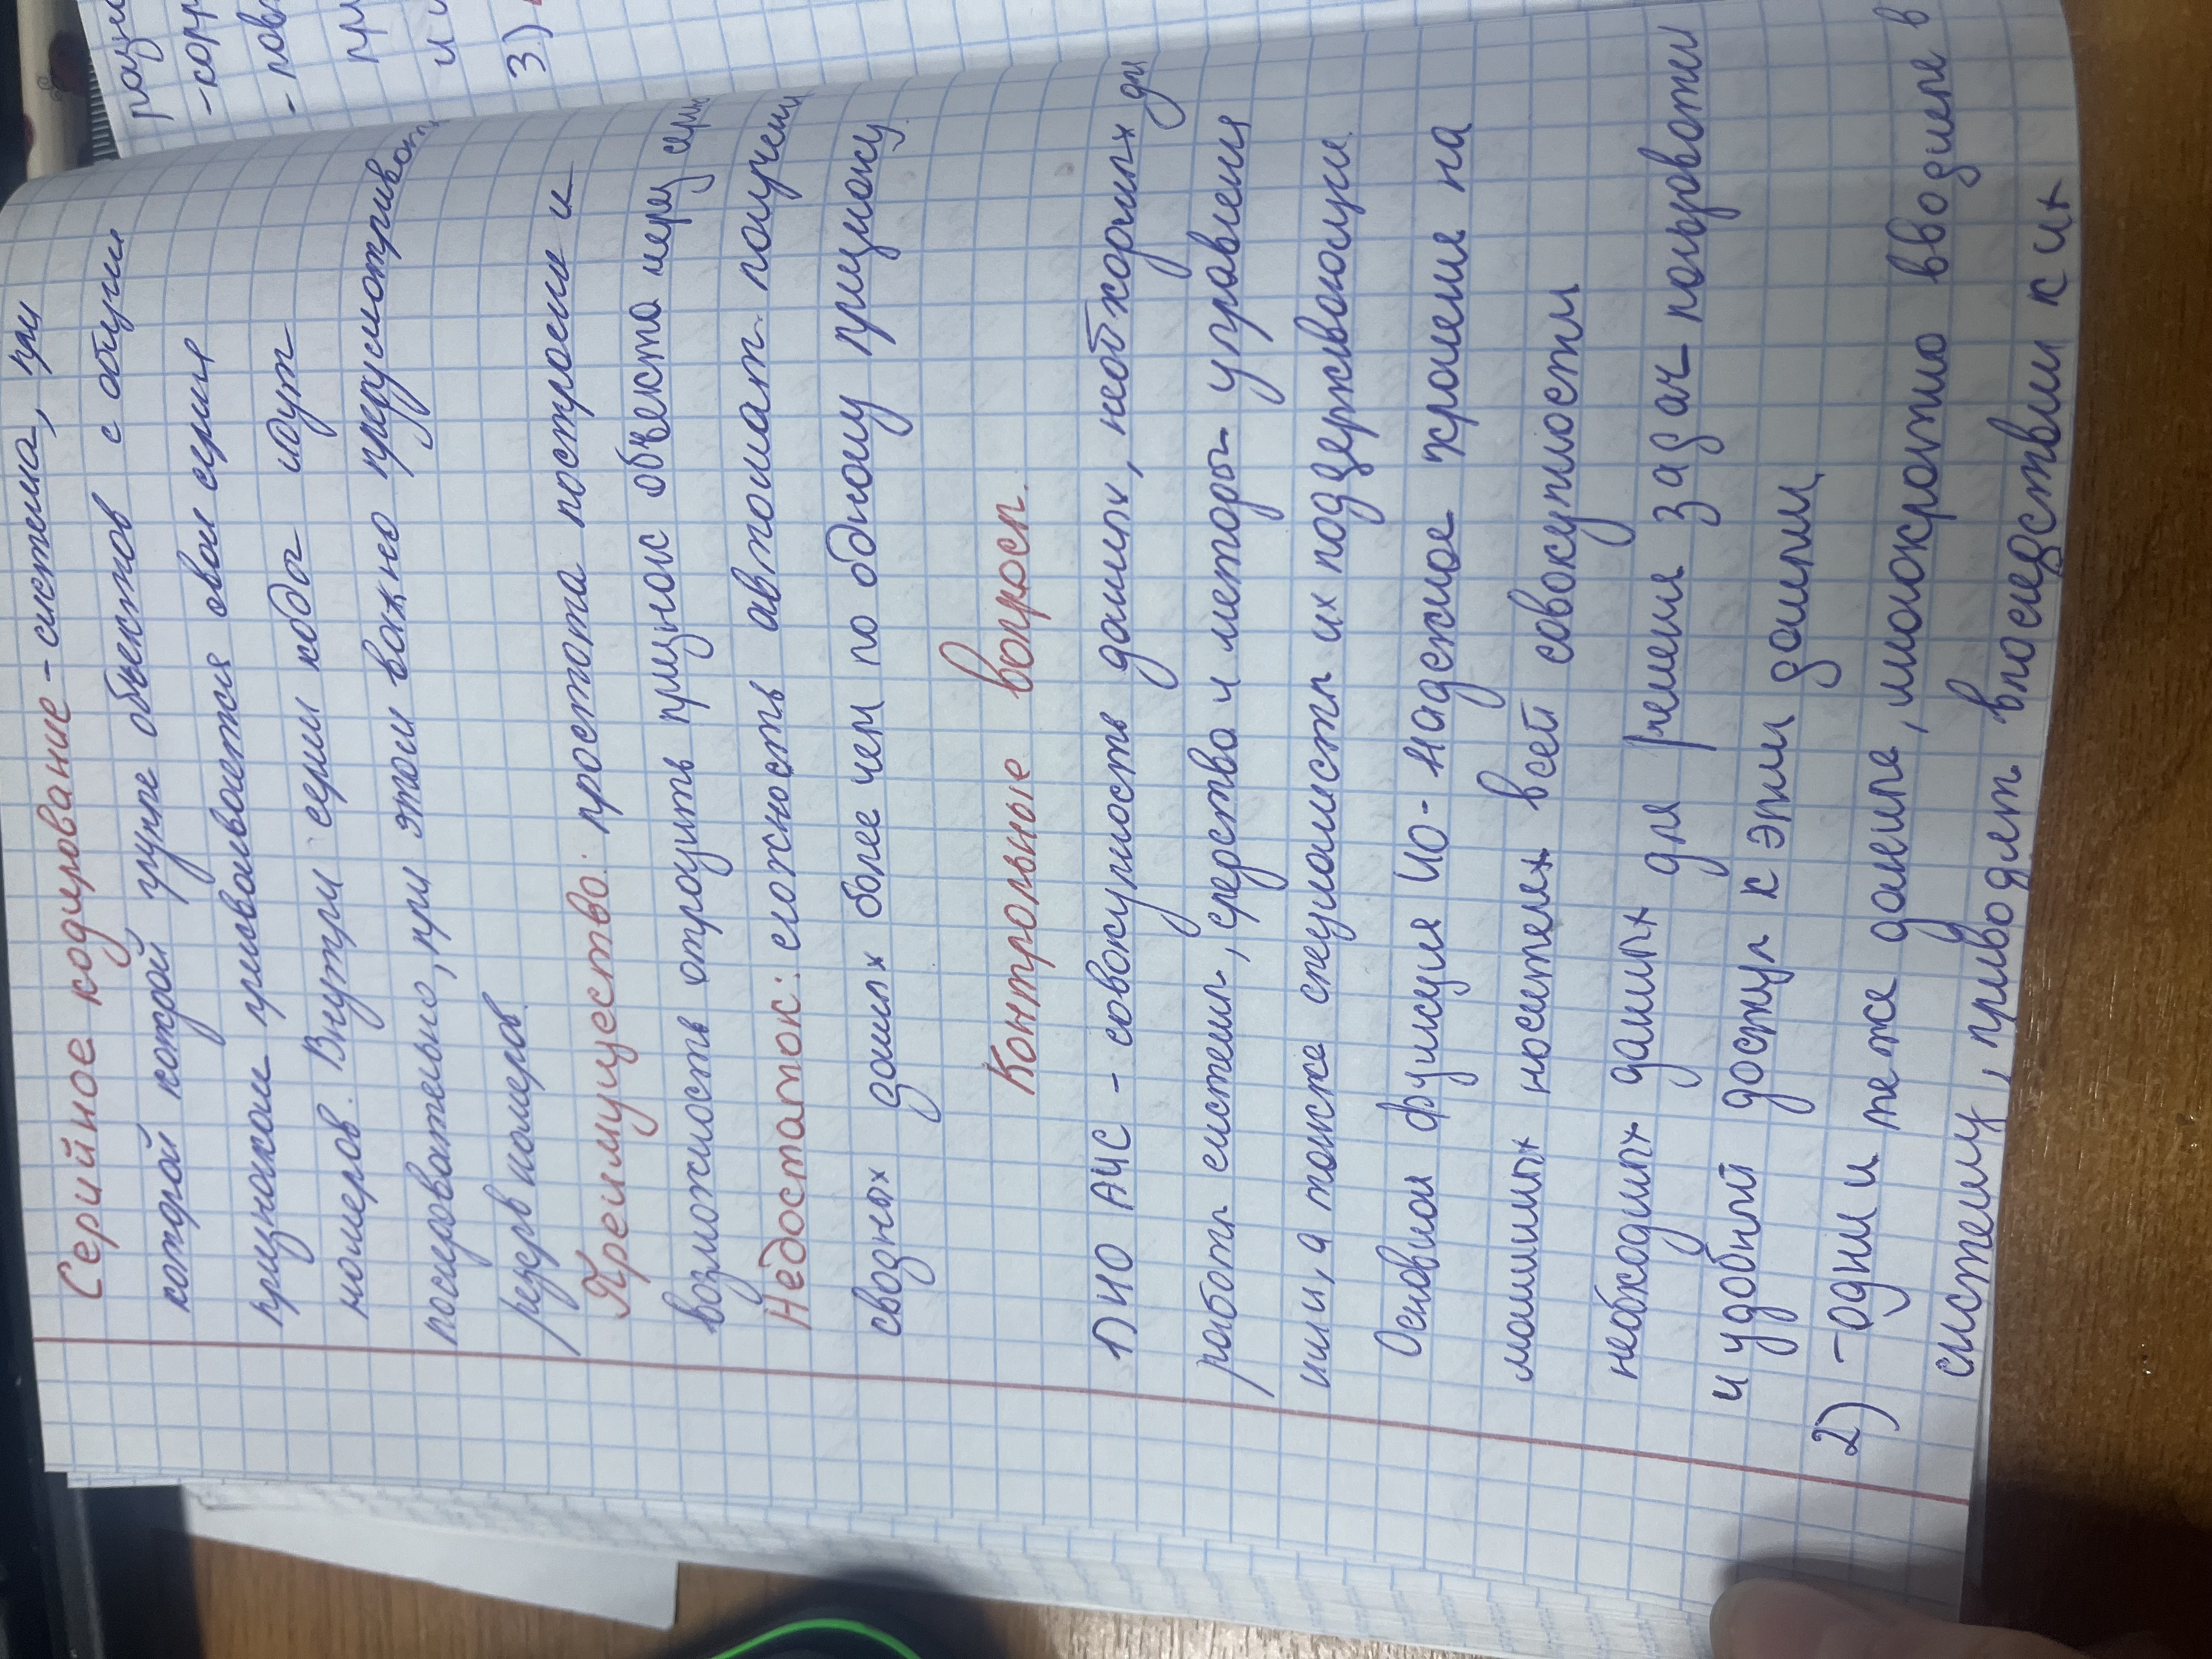 Серийное кодирование - система, при
которой котрой групе объектов с общим
признаком присваивается своя серия
номеров. Внутри серии кода идут
последовательно, при этом важно предусмотрив
резерв номеров.
Преимущество: простота построени и
возможность отрозить признос объекта через серию
Недостаток: сложность автомат. получени
сводных данных более чем по одному признаку
Контрольные вопросы.
1) ИО АИС - совокупность данных, необходимых для
работы системы, средства и методы управления
ими, а также специалисты их поддерживающие.
Основная функция ИО - надежное хранение на
машинных носителях всей совокупности
необходимых данных для решения задач пользователи
и удобный доступ к этим данным
2) - одни и те же данные, многократно вводимые в
систему, приводят впоследствии к их
разн
- корр
- пов
при
и
3)